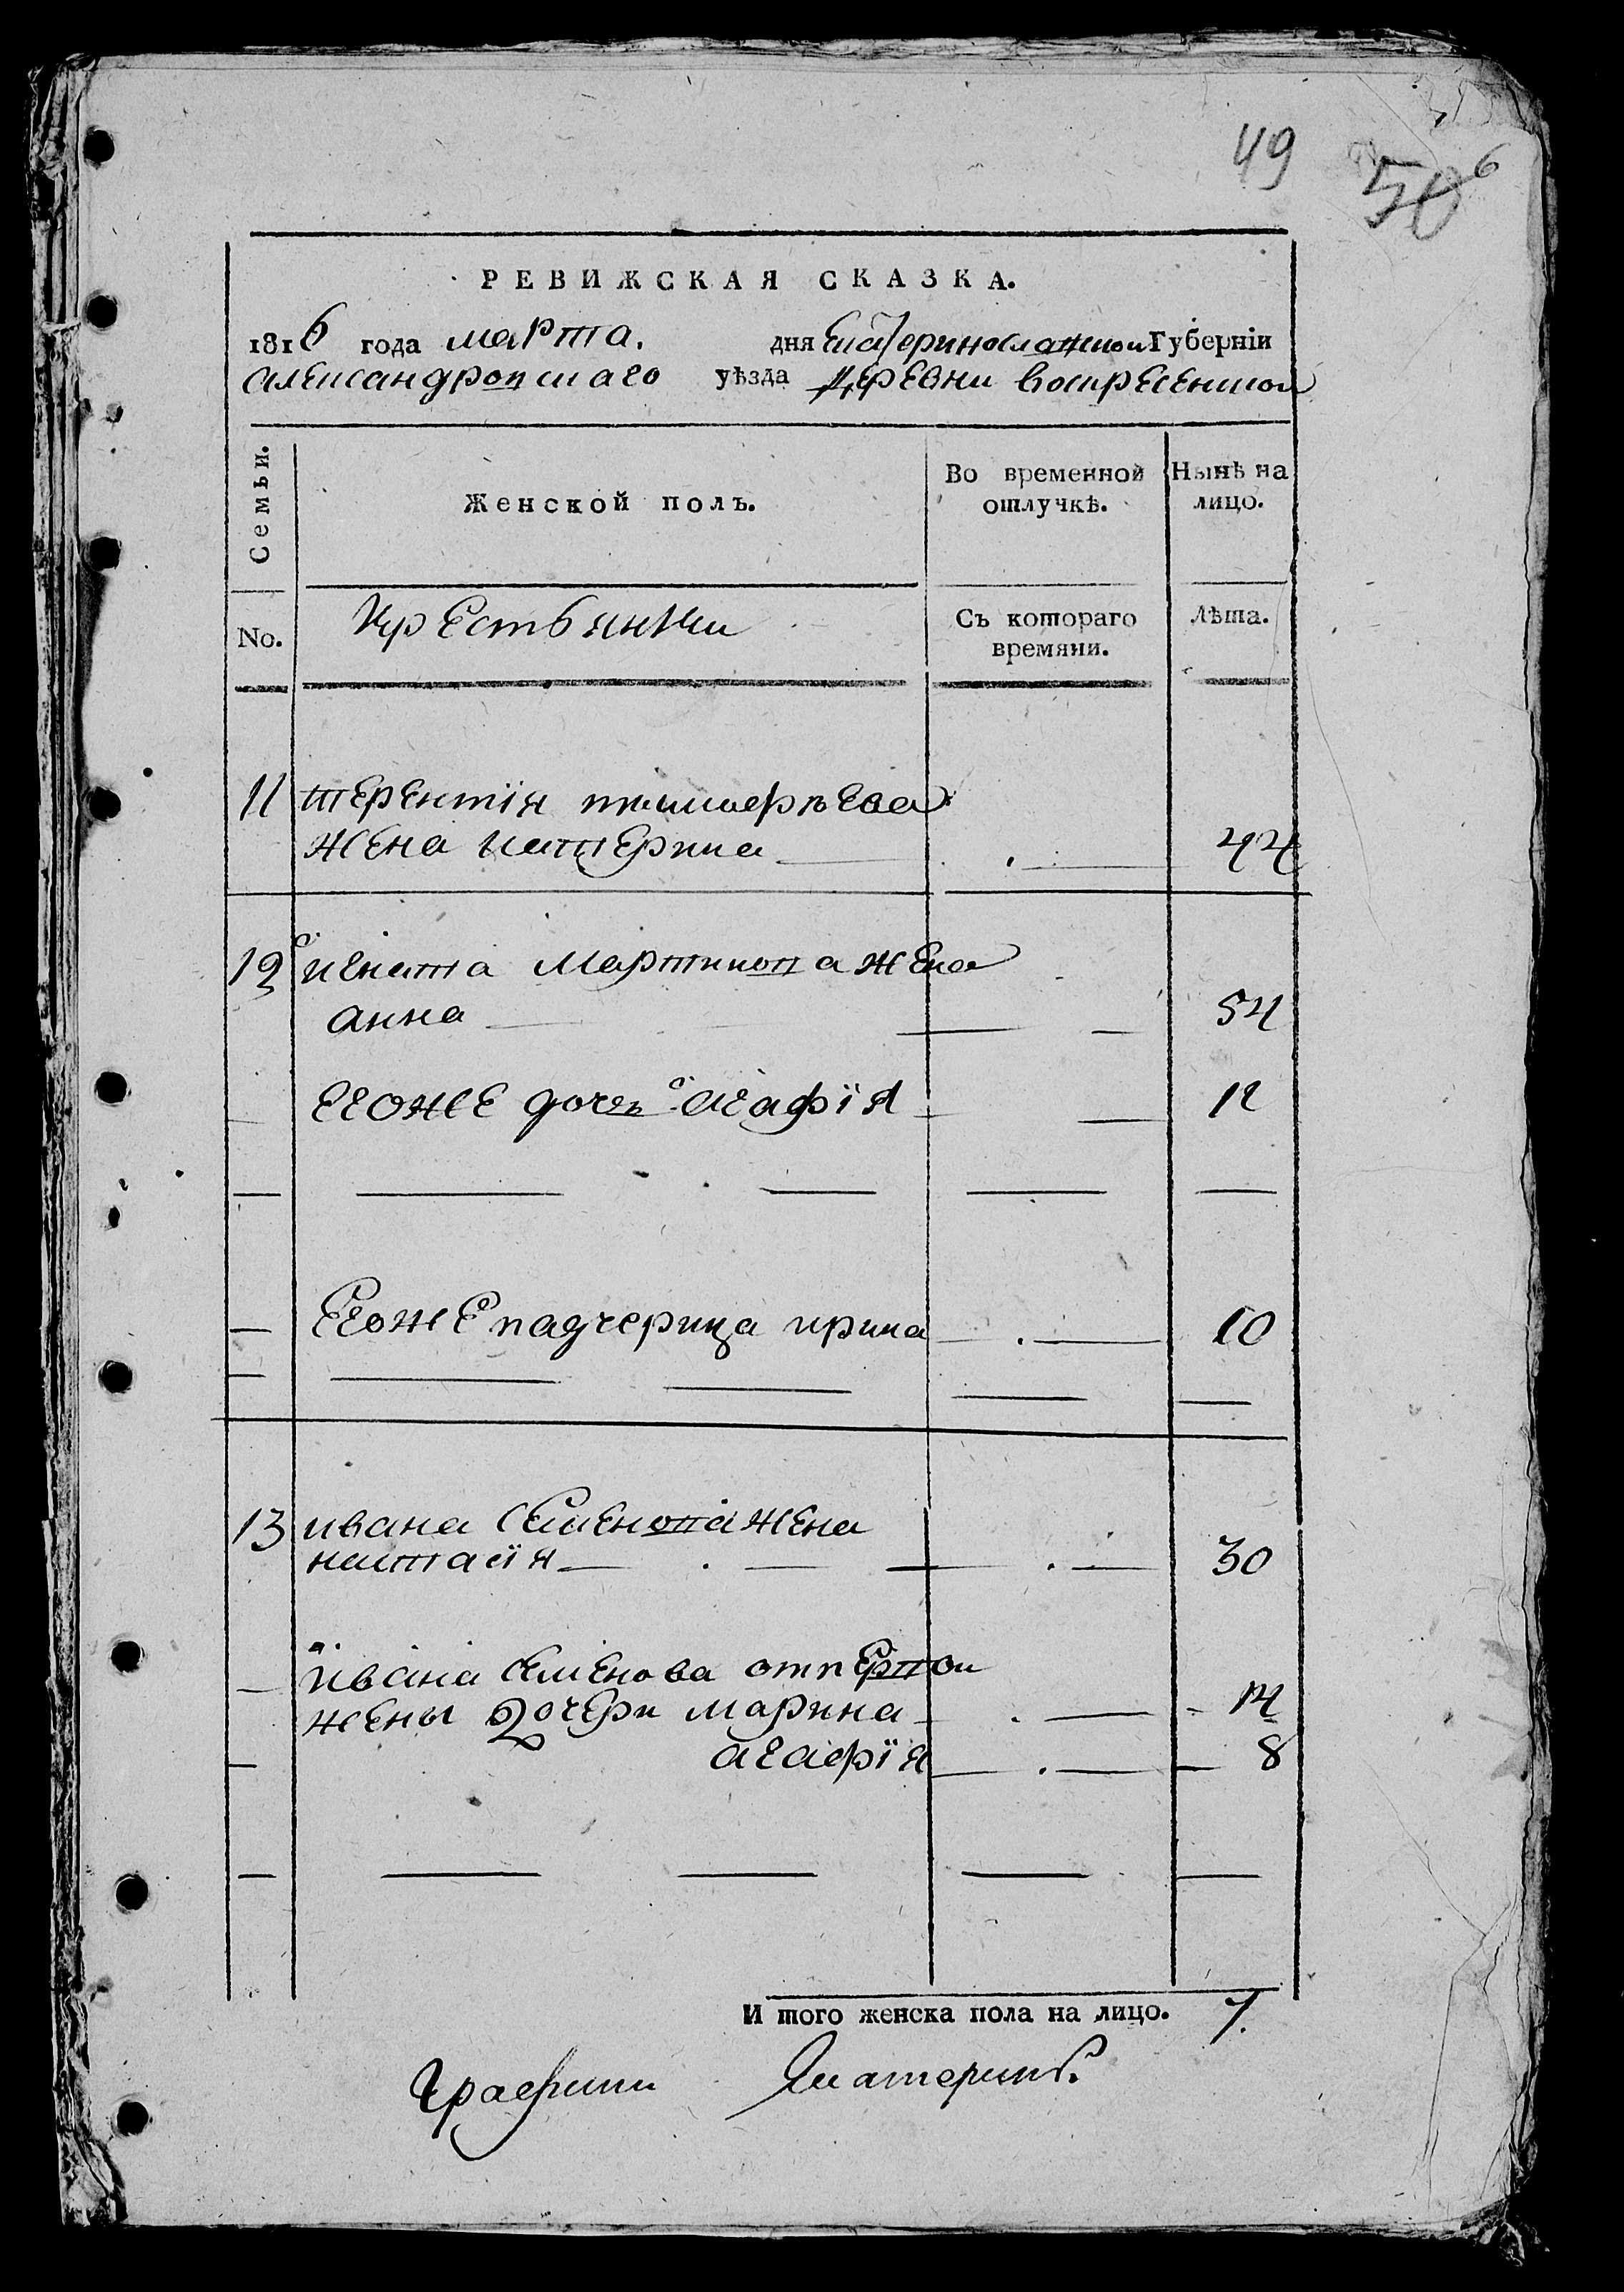 49 50 6
РЕВИЖСКАЯ СКАЗКА.
1816 года марта. дня Екатеринославской Губерніи
александровскаго уѣзда деревни воскресенской
Семьи. Женской полъ. Во временной отлучкѣ. Нынѣ на лицо.
No. крестьянки Съ котораго времяни. Лѣта.
11 терентія
жена катерина 44
12 игната мартинова жена
анна 54
егоже дочь агафїя 12
егоже падчерица ирина 10
13 ивана семенова жена
настасїя 30
ївана семенова отпервои
жены дочери марина 14
агафїя 8
И того женска пола на лицо. 7.
Графини Екатерины